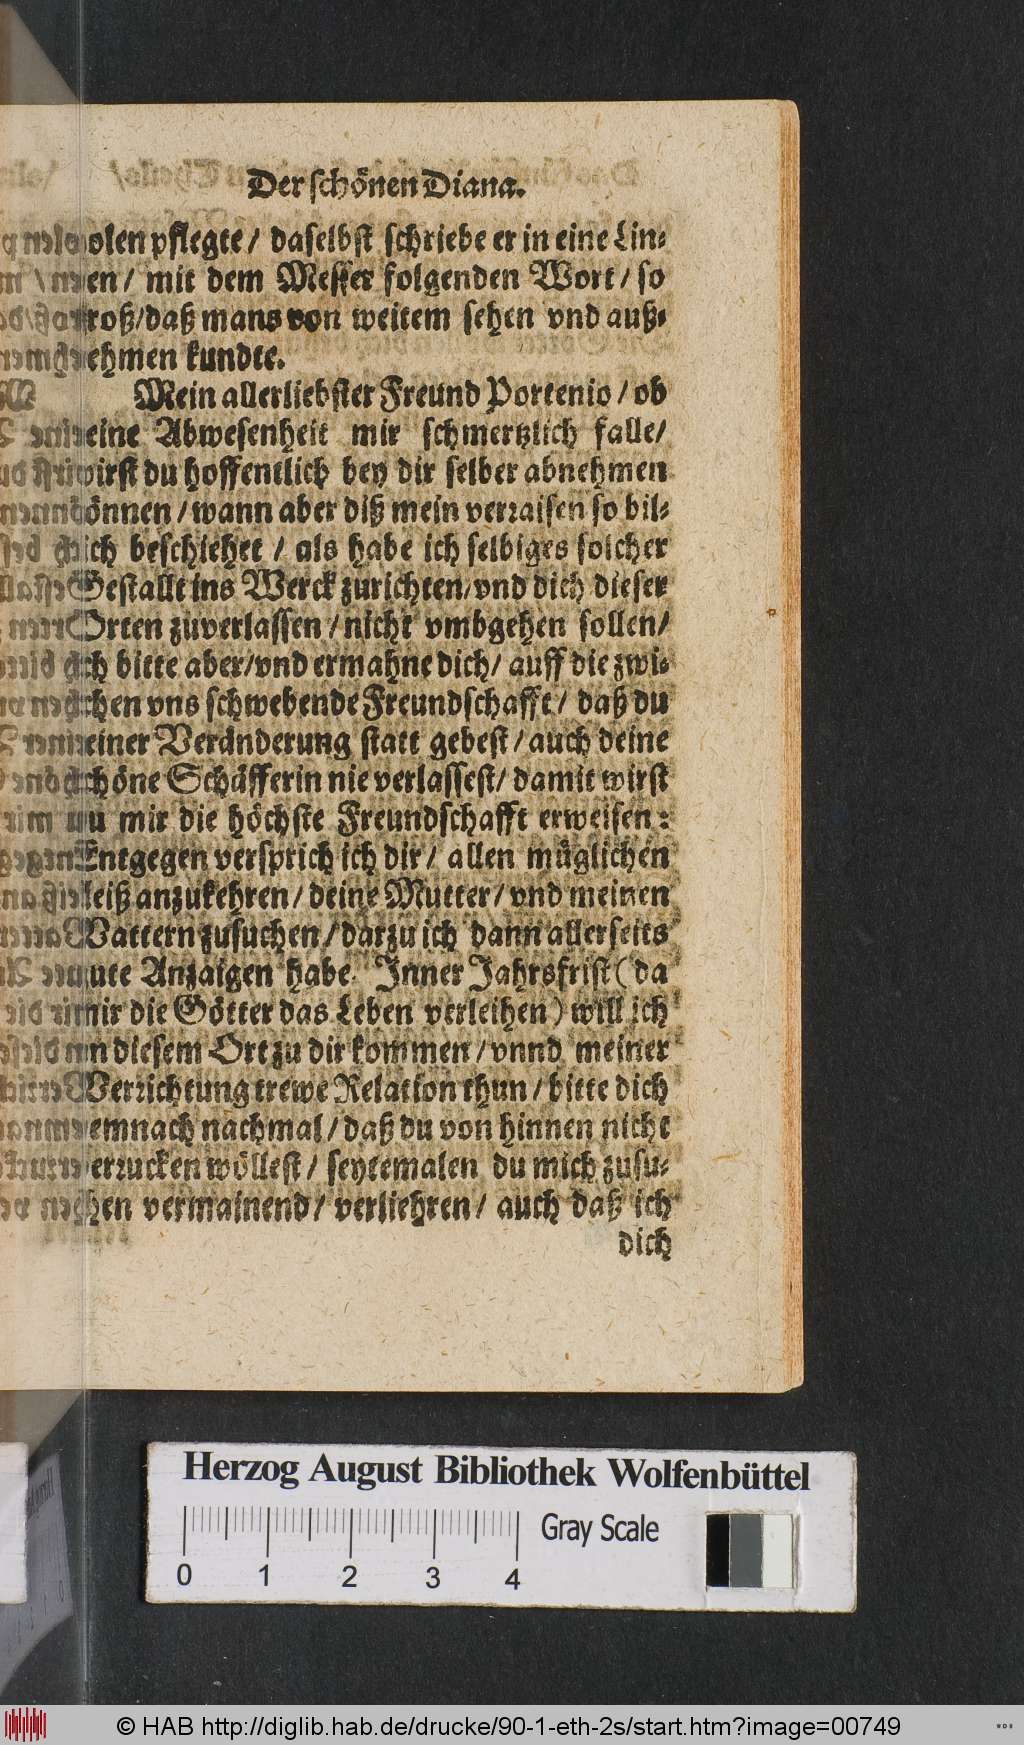 Der schönen Diana.
olen pflegte / daselbst schriebe er in eine Lin⸗
en / mit dem Messer folgenden Wort / so
roß / daß mans von weitem sehen vnd auß⸗
ehmen kundte.
Mein allerliebster Freund Portenio / ob
eine Abwesenheit mir schmertzlich falle /
wirst du hoffentlich bey dir selber abnehmen
önnen / wann aber diß mein verraisen so bil⸗
ich beschiehet / als habe ich selbiges solcher
Gestallt ins Werck zurichten / vnd dich dieser
Orten zuverlassen / nicht vmbgehen sollen /
ch bitte aber / vnd ermahne dich / auff die zwi⸗
chen vns schwebende Freundschafft / daß du
einer Veränderung statt gebest / auch deine
chöne Schäfferin nie verlassest / damit wirst
u mir die höchste Freundschafft erweisen:
Entgegen versprich ich dir / allen müglichen
leiß anzukehren / deine Mutter / vnd meinen
Vattern zusuchen / darzu ich dann allerseits
ute Anzaigen habe. Inner Jahrsfrist (da
mir die Götter das Leben verleihen) will ich
n diesem Ort zu dir kommen / vnnd meiner
Verrichtung trewe Relation thun / bitte dich
emnach nachmal / daß du von hinnen nicht
verrucken wöllest / seytemalen du mich zusu⸗
hen vermainend / verliehren / auch daß ich
dich
Herzog August Bibliothek Wolfenbüttel
0 1 2 3 4 Gray Scale
© HAB http://diglib.hab.de/drucke/90-1-eth-2s/start.htm?image=00749